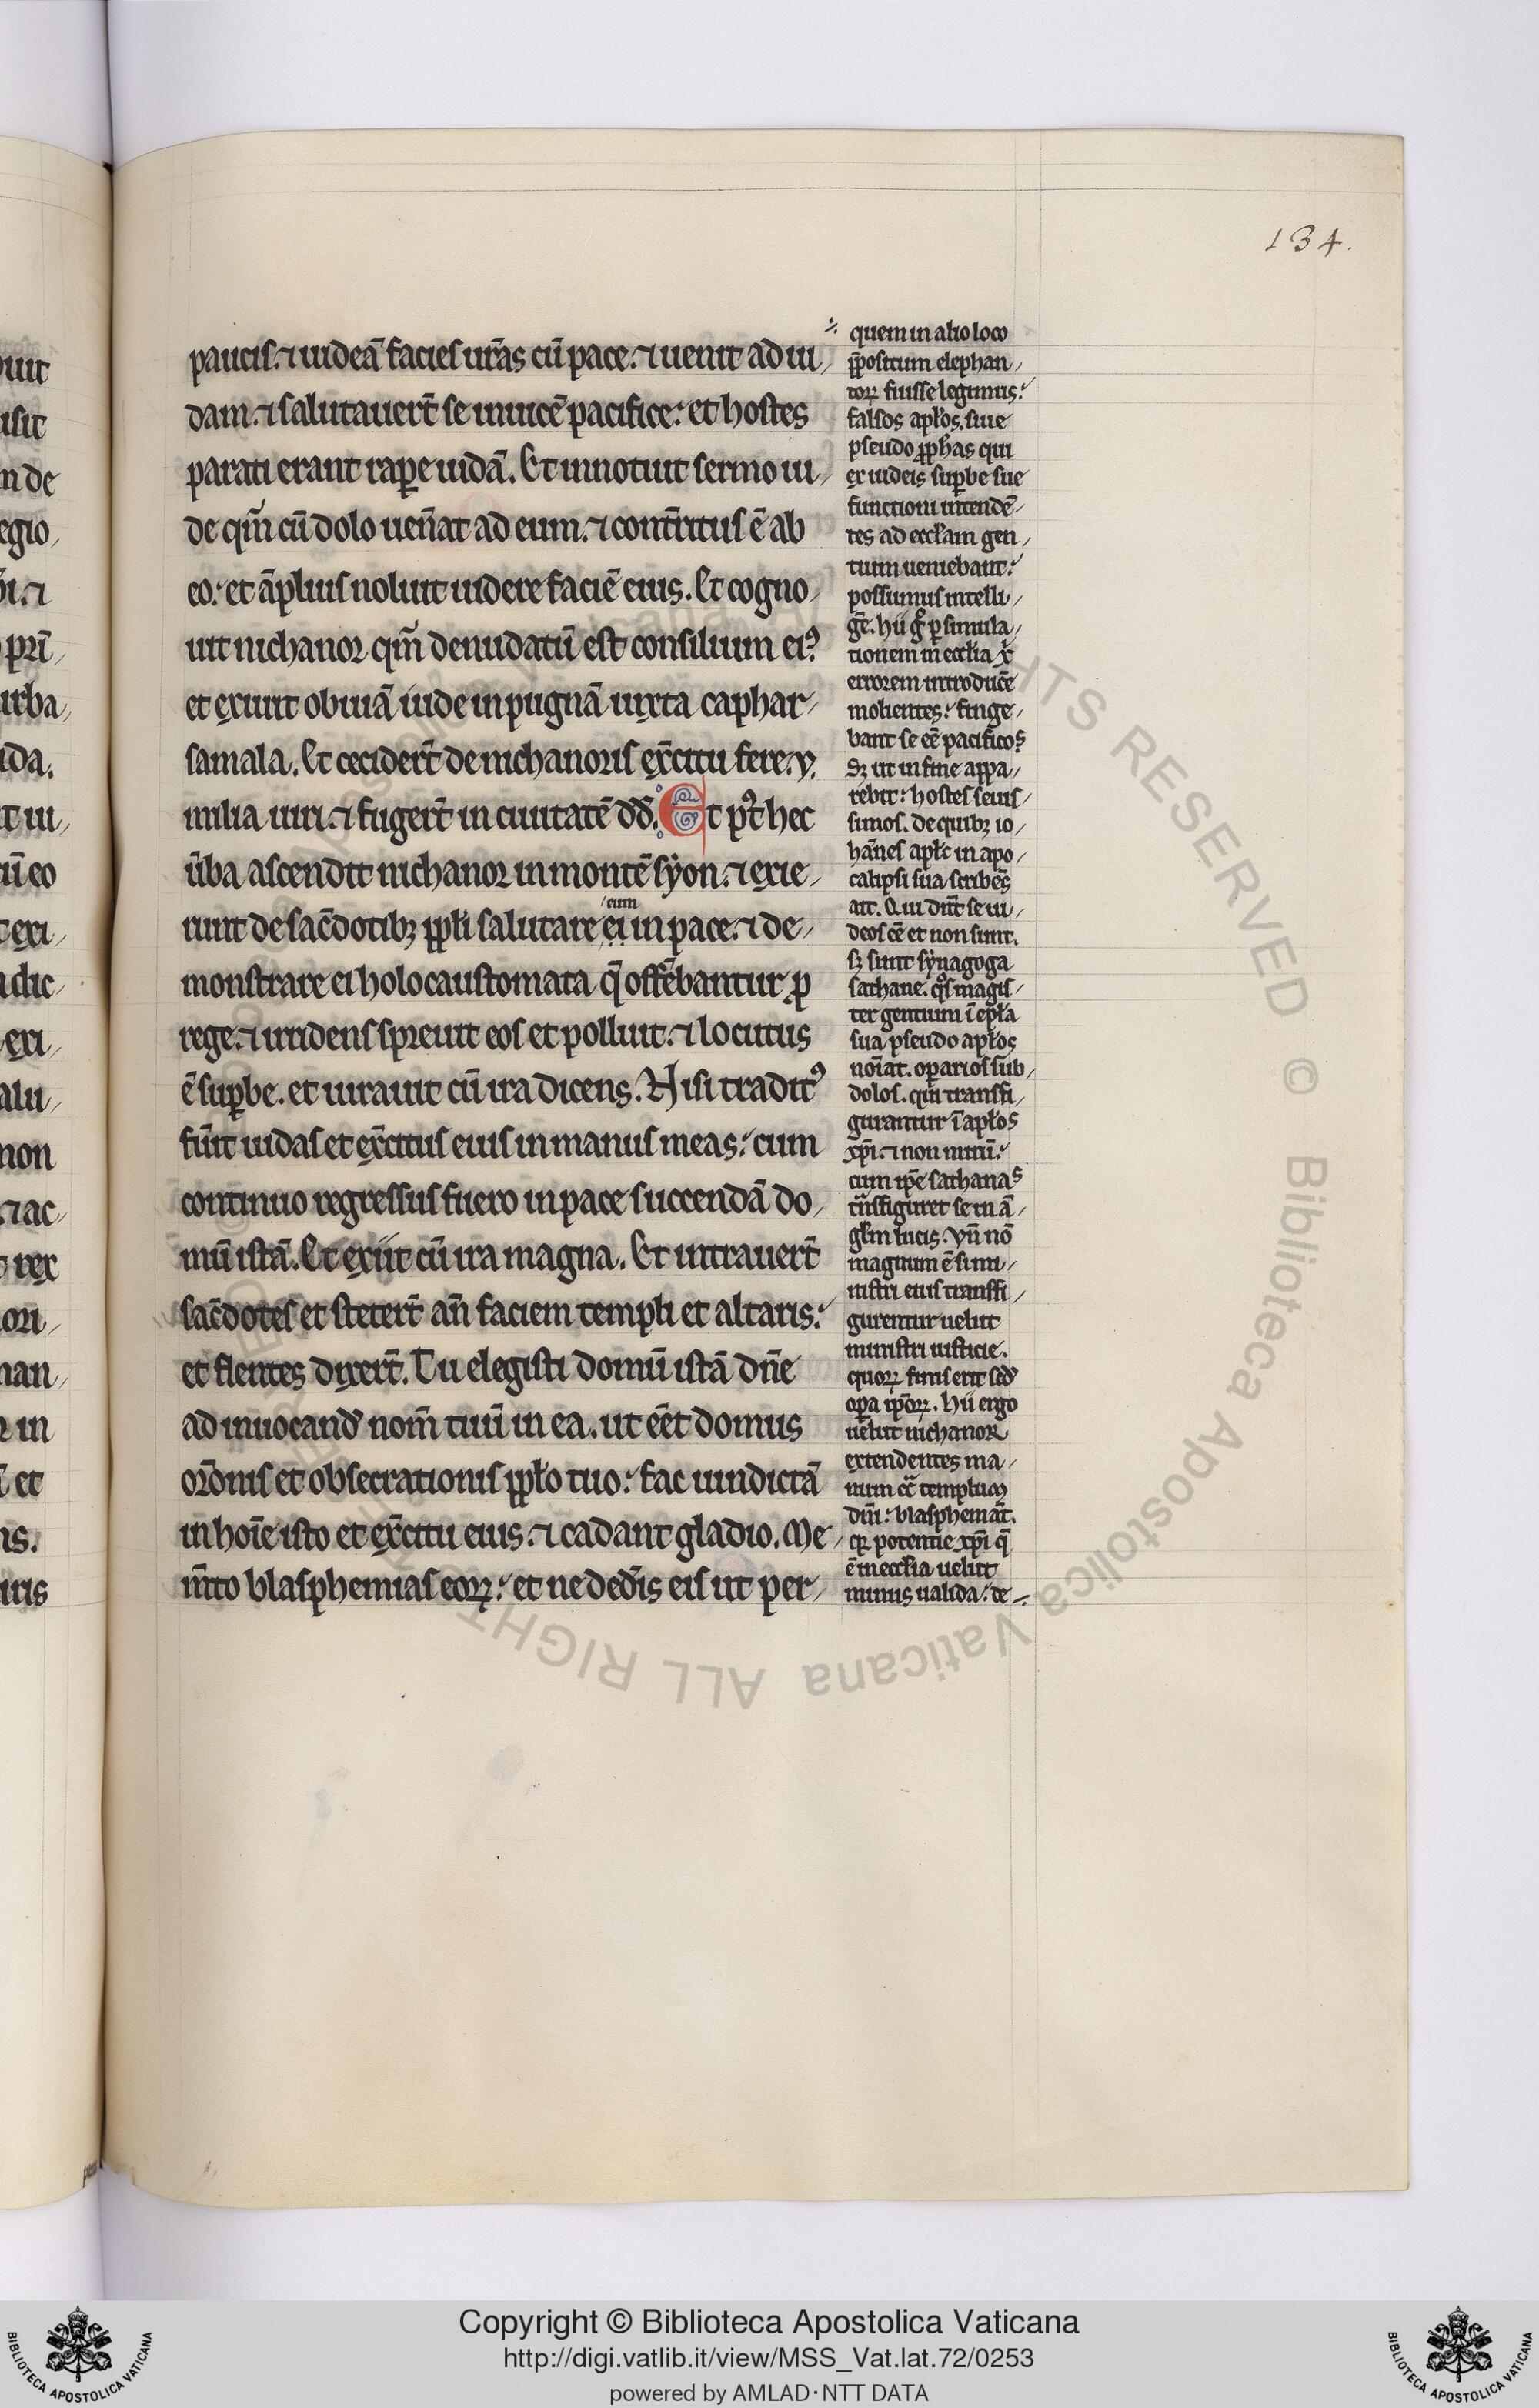 134.
paucis. ⁊ uideā facies ur̄as cū pace. ⁊ uenit ad iu
dam. ⁊ salutauer̄t se inuicē pacifice: et hostes
parati erant rap̄e iudā. Et innotuit sermo iu
de qm̄ cū dolo uen̄at ad eum. ⁊ contritus ē ab
eo: et āplius noluit uidere faciē eius. Et cogno
uit nichanor qm̄ denudatū est consilium eiꝰ
et exiuit obuiā iude in pugnā iuxta caphar
samala. Et cecider̄t de nichanoris exc̄itu fere .v.
milia uiri. ⁊ fuger̄t in ciuitatē dd̄. Et pꝰt hec
ūba ascendit nichanor in montē sẏon. ⁊ exie
eum
runt de sac̄dotibꝫ ppl̄i salutare ei in pace. ⁊ de
monstrare ei holocaustomata q̄ offēbantur ꝓ
rege. ⁊ irridens spreuit eos et polluit. ⁊ locutus
ē sup̄be. et iurauit cū ira dicens. Nisi traditꝰ
fūit iudas et exc̄itus eius in manus meas: cum
continuo regressus fuero in pace succendā do
mū istā. Et exiit cū ira magna. Et intrauer̄t
sac̄dotes et steter̄t an̄ faciem templi et altaris:
et flentes dixer̄t. Tu elegisti domū istā dn̄e
ad inuocand' nom̄ tuū in ea. ut eēt domus
or̄onis et obsecrationis ppl̄o tuo: fac uindictā
in hoīe isto et exc̄itu eius. ⁊ cadant gladio. Me
m̄to blasphemias eoꝝ: et ne ded̄is eis ut per
quem in alio loco
p̄positum elephan
toꝝ fuisse legimus:
falsos apl̄os. siue
pseudo ꝓph̄as qui
ex iudeis sup̄be sue
functioni intendē
tes ad eccl̄am gen
tium ueniebant:
possumus intelli
gē. hii g̊ p̱ simula
tionem in eccl̄ia
errorem introducē
molientes: finge
bant se eē pacificos
sꝫ ut in fine appa
rebit: hostes seuis
simos. de quibꝫ io
hān̄es apl̄c in apo
calipsi sua scribēs
ait. Qui dn̄t se iu
deos eē et non sunt.
sꝫ sunt sẏnagoga
sathane. qͦs magis
ter gentium ī epl̄a
sua pseudo apl̄os
noīat. op̄arios sub
dolos. qui transfi
gurantur ī apl̄os
xp̄i. ⁊ non mirū:
cum ip̄e sathanas
tͣnsfiguret se in ā
gl̄m lucis. Vn̄ nō
magnum ē si mi
nistri eius transfi
gurentur uelut
ministri iusticie.
quoꝝ finis erit scd̄'
op̄a ip̄oꝝ. Hii ergo
uelut nichanor
extendentes ma
num cͣ templum
dn̄i: blasphemāt.
qꝛ potentie xp̄i q̄
ē in eccl̄ia uelut
minus ualida: de
uit
isit
n de
egio
pri
urba
ida.
t iu
cū eo
t exi
dic
exi
alu
non
⁊ ac
rex
ori
nan
in
et
is.
uis
Copyright © Biblioteca Apostolica Vaticana
http://digi.vatlib.it/view/MSS_Vat.lat.72/0253
powered by AMLAD·NTT DATA
BIBLIOTECA APOSTOLICA VATICANA
BIBLIOTECA APOSTOLICA VATICANA
ALL RIGHTS RESERVED © Biblioteca Apostolica Vaticana